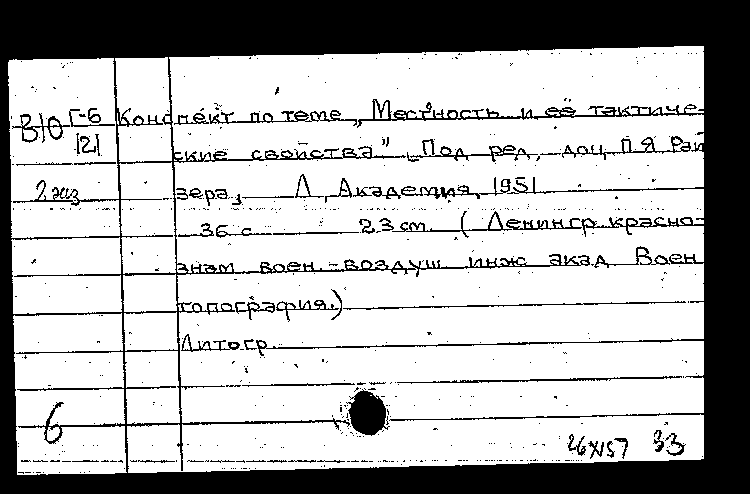 В10 Г-6 Конспект по теме „Местность и её тактиче-
121 ские свойства" Под ред. доц. П.Я Рай
2 экз зера, Л, Академия, 1951
36 с 23 см. (Ленингр. красно-
знам воен.-воздуш инж акад Воен
топография.)
Литогр.
6
26XI57 33